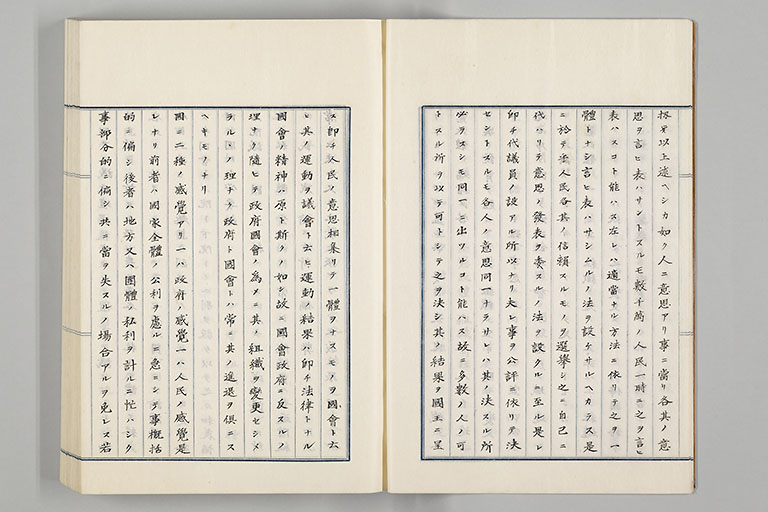 抑々以上述ヘシカ如ク人ニ意思アリ事ニ當リ各其ノ意
思ヲ言ヒ表ハサントスルモ數千萬ノ人民一時ニ之ヲ言ヒ
表ハスコト能ハス左レハ適當ナル方法ニ依リテ之ヲ一
體トナシ言ヒ表ハサシムルノ法ヲ設ケサルヘカラス是
ニ於テ乎人民各其ノ信頼スルモノヲ選擧シ之ニ自己ニ
代ハリテ意思ノ發表ヲ委スルノ法ヲ設クルニ至ル是レ
卽チ代議員ノ設アル所以ナリ夫レ事ヲ公評ニ依リテ決
セントスルモ各人ノ意思同一ナラサレハ其ノ決スル所
必ラスシモ同一ニ出ツルコト能ハス故ニ多數ノ人ノ可
トスル所ヲ以テ可トシテ之ヲ決シ其ノ結果ヲ國王ニ呈
ス卽チ人民ノ意思相集リテ一體ヲナスモノヲ國會ト云
ヒ其ノ運動ヲ議會ト云ヒ運動ノ結果ハ卽チ法律トナル
國會ノ精神ハ原ト斯クノ如シ故ニ國會政府ニ反スルノ
理ナク隨ヒテ政府國會ノ爲メニ其ノ組織ヲ變更セシメ
ラルヽノ理ナク政府ト國會トハ常ニ其ノ進退ヲ俱ニス
ヘキモノナリ
國ニ二種ノ感覺アリ一ハ政府ノ感覺一ハ人民ノ感覺是
レナリ前者ハ國家全體ノ公利ヲ慮ルニ急ニシテ事概括
的ニ偏シ後者ハ地方又ハ團體ノ私利ヲ計ルニ忙ハシク
事部分的ニ偏シ共ニ當ヲ失スルノ場合アルヲ免レス若